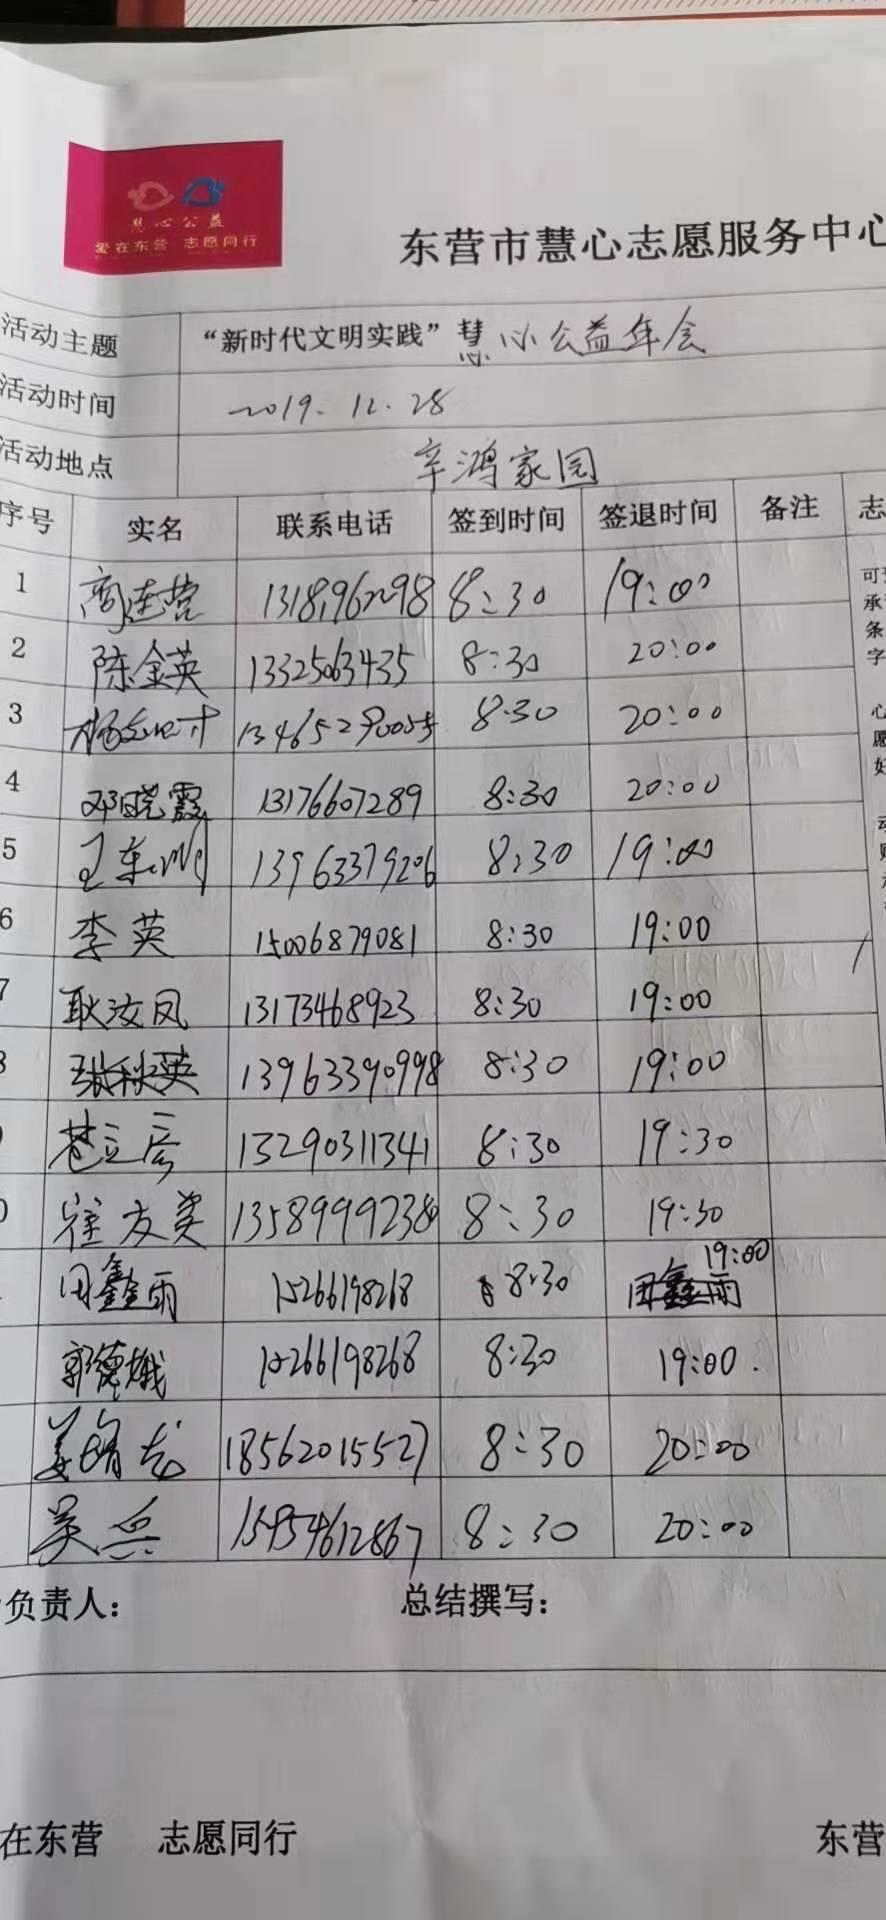 慧心公益
爱在东营 志愿同行
东营市慧心志愿服务中心
活动主题 “新时代文明实践”慧心公益年会
活动时间 2019.12.28
活动地点 辛鸿家园
序号 实名 联系电话 签到时间 签退时间 备注 志
1 商连营 13181962298 8:30 19:00
2 陈金英 13325063435 8:30 20:00
3 8:30 20:00
4 邓晓霞 13176607289 8:30 20:00
5 王东明 13963379206 8:30 19:00
6 李英 15006879081 8:30 19:00
7 耿汝凤 13173468923 8:30 19:00
张秋英 13963390998 8:30 19:00
苍立彦 13290311341 8:30 19:30
0 崔友美 13589999238 8:30 19:30
田鑫雨 15266198268 8:30 19:00
田鑫雨
郭德娥 15266198268 8:30 19:00.
姜 18562015527 8:30 20:00
吴兵 15954612867 8:30 20:00
承
条
字
心
愿
好
负责人： 总结撰写：
在东营 志愿同行 东营